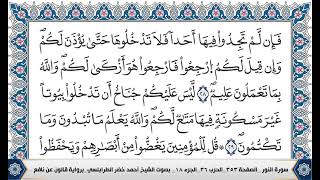 فَإِن لَّمْ تَجِدُواْ فِيهَا أَحَداً فَلَا تَدْخُلُوهَا حَتَّىٰ يُؤْذَنَ لَكُمْ
وَإِن قِيلَ لَكُمُ ارْجِعُواْ فَارْجِعُواْ هُوَ أَزْكَىٰ لَكُمْ وَاللَّهُ
بِمَا تَعْمَلُونَ عَلِيمٌ ۝ لَّيْسَ عَلَيْكُمْ جُنَاحٌ أَن تَدْخُلُواْ بِيُوتاً
غَيْرَ مَسْكُونَةٍ فِيهَا مَتَٰعٌ لَّكُمْ وَاللَّهُ يَعْلَمُ مَا تُبْدُونَ وَمَا
تَكْتُمُونَ ۝ قُل لِّلْمُؤْمِنِينَ يَغُضُّواْ مِنْ أَبْصَٰرِهِمْ وَيَحْفَظُواْ
سورة النور _ الصفحة ٣٥٣ _ الحزب ٣٦ _ الجزء ١٨ _ بصوت الشيخ أحمد خضر الطرابلسي _ برواية قالون عن نافع